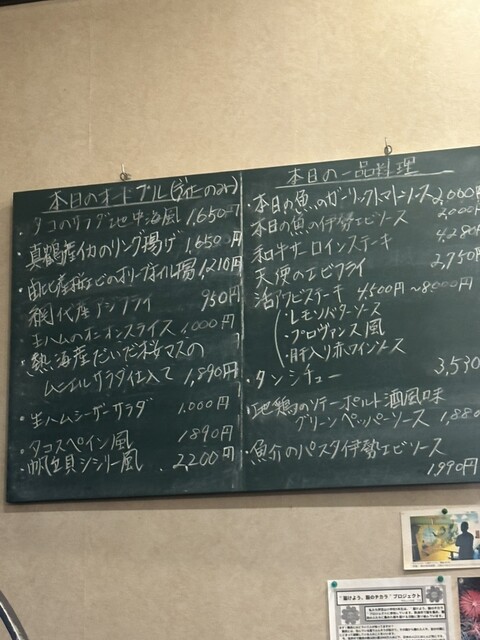 本日のオードブル(ディナーのみ)
・タコのサラダ地中海風 1,650円
・真鶴産イカのリング揚げ 1,650円
・由比産桜エビのオリーブオイル 1,210円
・網代産アジフライ 950円
・生ハムのオニオンスライス 1,000円
・熱海産だいだい桜マスの
ムニエルサラダ仕立て 1,890円
・生ハムシーザーサラダ 1,000円
・タコスペイン風 1890円
・帆立貝シシリー風 2200円
本日の一品料理
・本日の魚のガーリックトマトソース 2,000円
本日の魚の伊勢エビソース 2,000円
和牛サーロインステーキ 4,280円
天使のエビフライ 2,750円
活アワビステーキ 4,500円〜8000円
・レモンバターソース
・プロヴァンス風
・肝入り赤ワインソース
・タンシチュー 3,530
・地鶏のソテーポルト酒風味
グリーンペッパーソース 1,880
・魚介のパスタ伊勢エビソース
1,990円
"届けよう、服のチカラ"プロジェクト